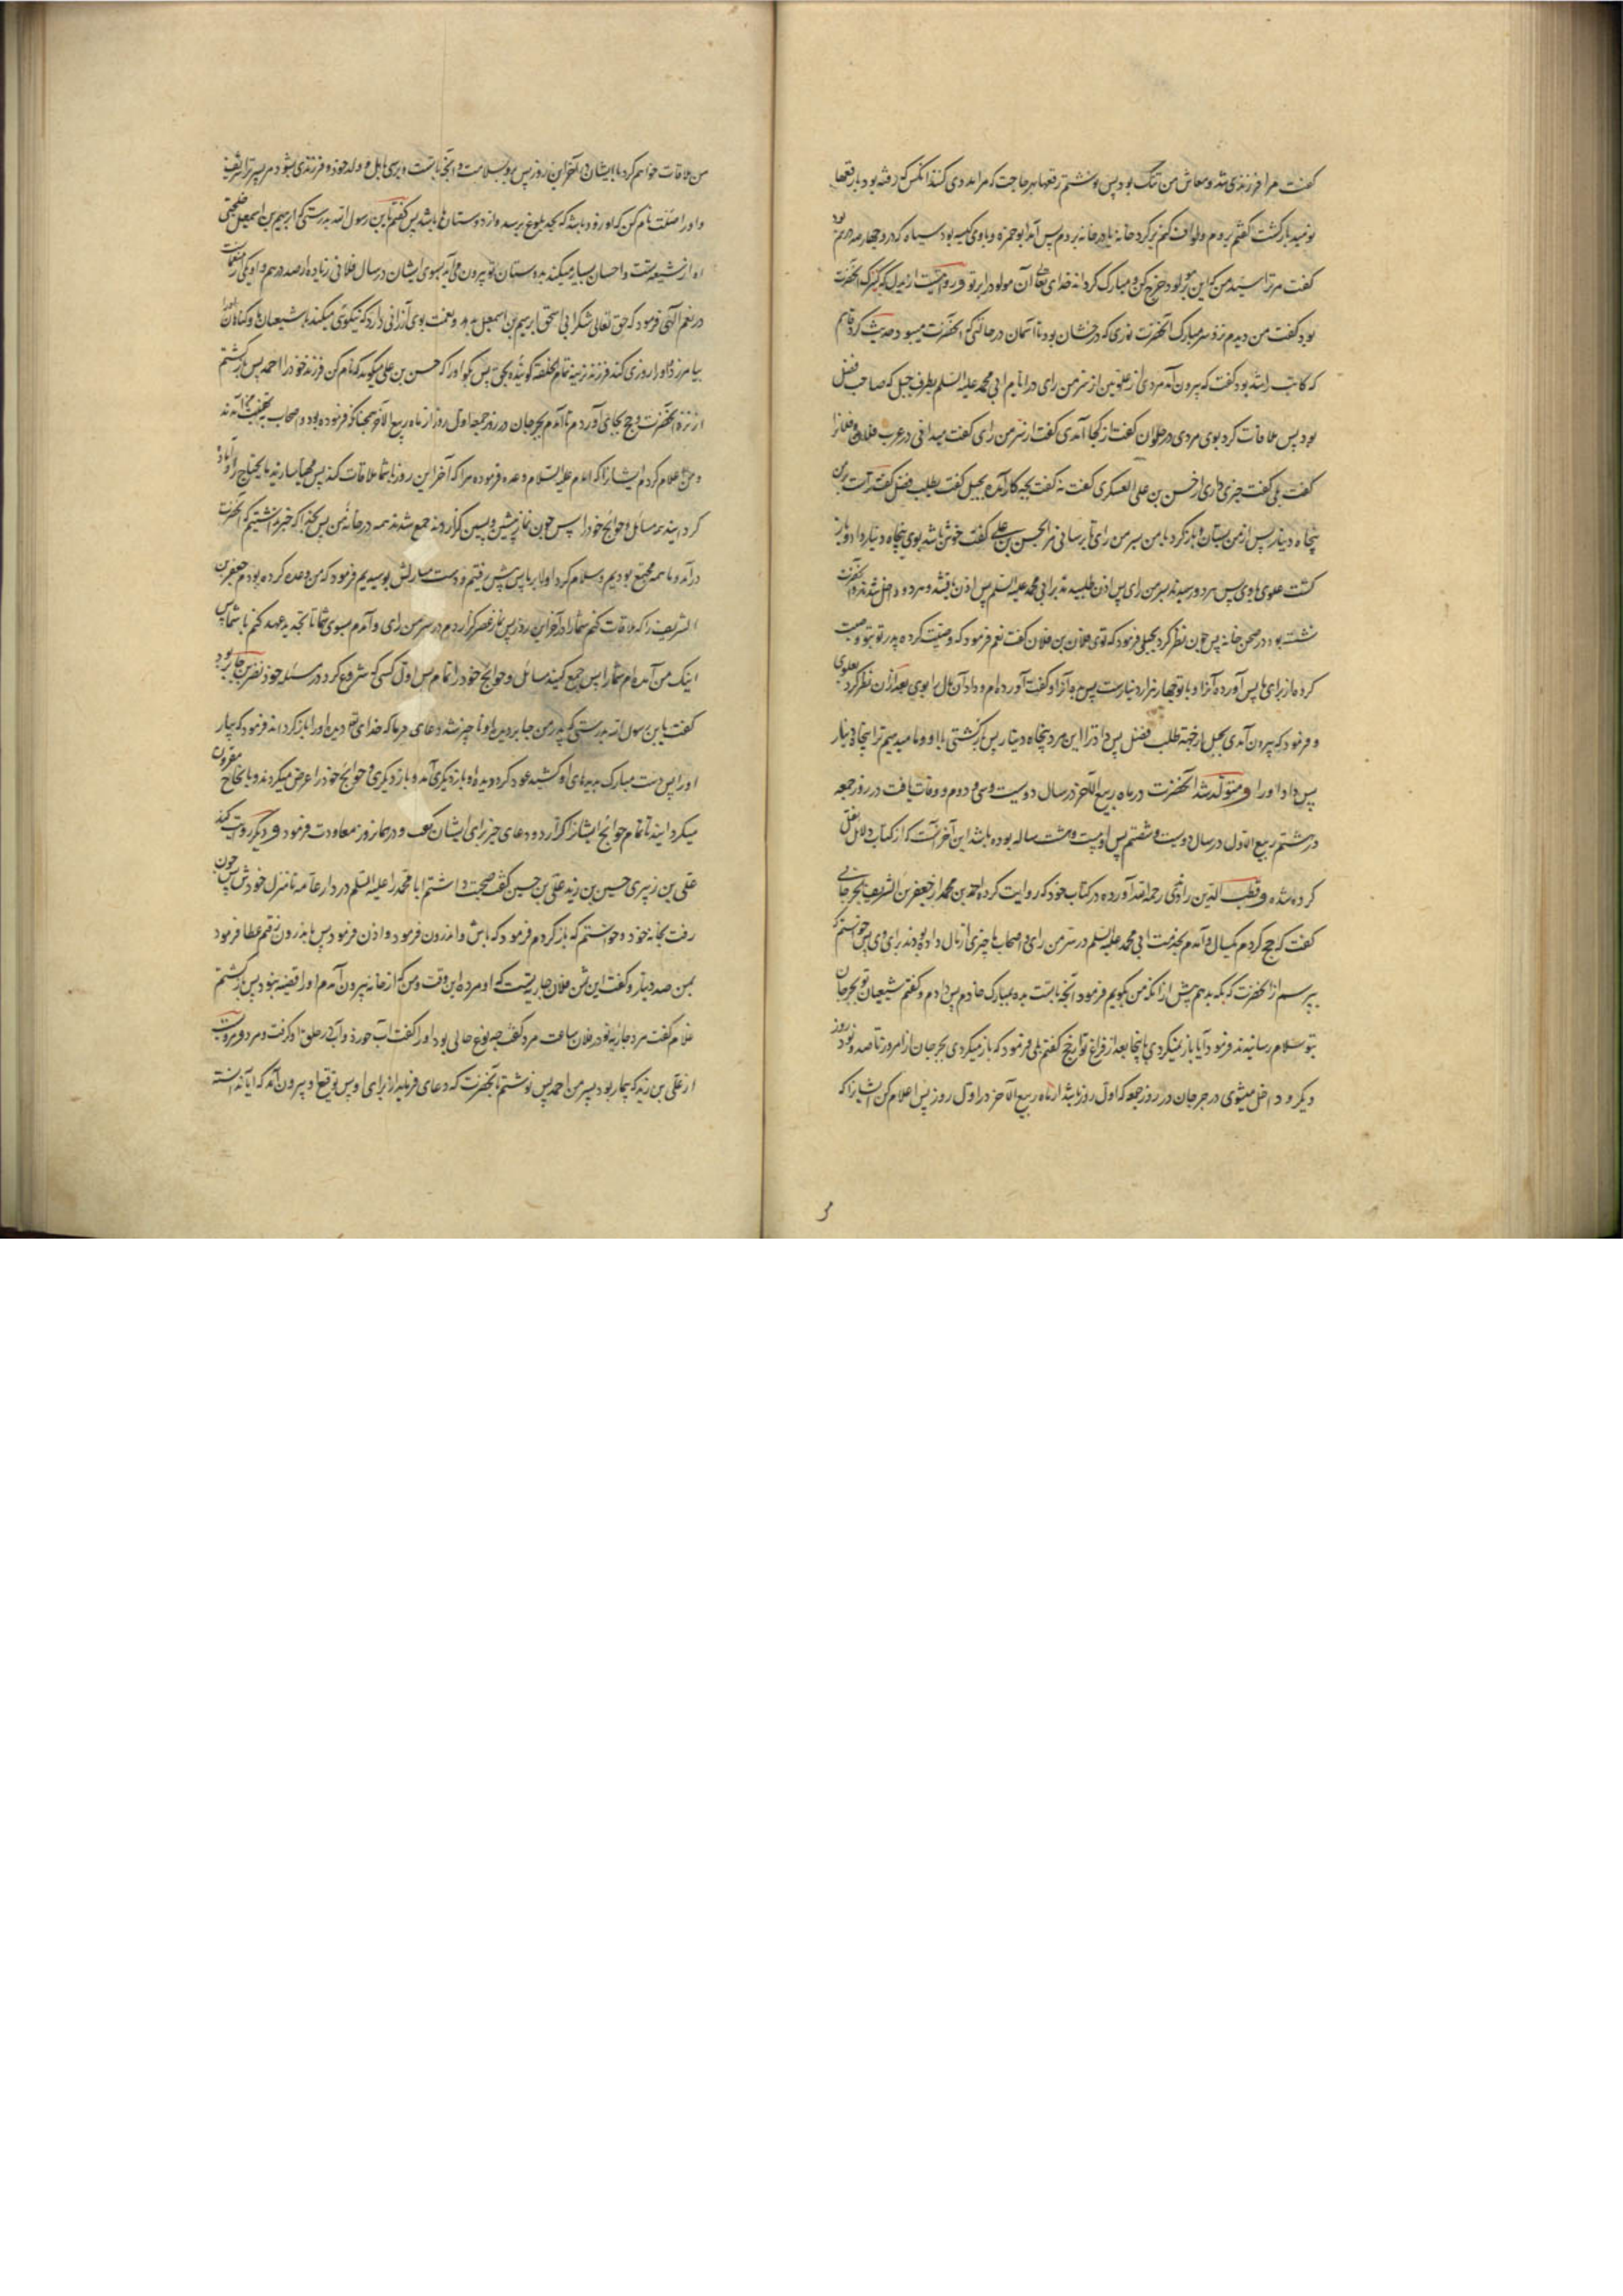 گفت مرا فرزندی شد و معاش من تنگ بود پس نوشتم رقعها بهر حاجت که مرا مددی کنند آنکس که رفته بود با رقعها
نومید بازگشت گفتم بروم و طواف کنم بر گرد خانه پس آمد ابو حمزه و با وی کیسه بود سیاه که درو چهارصد درم بود
گفت مر ترا سید من که این بر مولود خرج کن و مبارک گرداند خدای تعالی آن مولود را بر تو و روایتست از
بود گفت من دیدم نزد سر مبارک آنحضرت نوری که درخشان بود تا آسمان در حالتی که آنحضرت حدیث کرد قاسم
که کاتب راشد بود گفت که بیرون آمد مردی از علویین از سرمن رای در ایام ابی محمد علیه السلم بطرف جبل که صاحب فضل
بود پس ملاقات کرد بوی مردی در حلوان گفت از کجا آمدی گفت از سرمن رای گفت میدانی درب فلان و فلانرا
گفت بلی گفت خبری داری از حسن بن علی العسکری گفت نه گفت بچه کار آمده بجبل گفت بطلب فضل گفت تراست بر من
پنجاه دینار پس از من بستان و بازگرد با من بسرمن رای تا برسانی مرا بحسن بن علی گفت خوش باشد بوی پنجاه دینار داد و باز
گشت علوی با وی پس هر دو رسیدند بسرمن رای پس اذن طلبیدند بر ابی محمد علیه السلم پس اذن یافتند و هر دو داخل شدند و آنحضرت
نشسته بود در صحن خانه پس چون نظر کرد بجبلی فرمود که توی فلان بن فلان گفت نعم فرمود که وصیت کرده پدر تو بتو وصیت
کرده از برای ما پس آورده آنرا و با تو چهار هزار دینارست پس بده آنرا و گفت آورده‌ام و داد آن مال را بوی بعد از آن نظر کرد بعلوی
و فرمود که بیرون آمدی بجبل از جهة طلب فضل پس داد ترا این مرد پنجاه دینار پس برگشتی با او و ما میدهیم ترا پنجاه دینار
پس داد او را و متولد شد آنحضرت در ماه ربیع الآخر در سال دویست و سی و دوم و وفات یافت در روز جمعه
در هشتم ربیع الاول در سال دویست و شصتم پس او بیست و هشت ساله بوده باشد این آخر آنست که از کتاب دلایل نقل
کرده شده و قطب الدین راوندی رحمه الله آورده در کتاب خود که روایت کرده احمد بن محمد از جعفر بن الشریف جرجانی
گفت که حج کردم یکسال و آمدم بخدمت ابی محمد علیه السلم در سرمن رای و اصحاب ما چیزی از مال داده بودند برای وی پس خواستم که
بپرسم از آنحضرت که بکه بدهم پیش از آنکه من بگویم فرمود آنچه با تست بده بمبارک خادم پس دادم و گفتم شیعیان تو بجرجان
بتو سلام رسانیدند فرمود آیا باز نمیگردی بآنجا بعد از فراغ تو از حج گفتم بلی فرمود که باز میگردی بجرجان از امروز تا صد و نود روز
دیگر و داخل میشوی در جرجان در روز جمعه که اول روز باشد از ماه ربیع الآخر در اول روز پس اعلام کن ایشانرا که
من ملاقات خواهم کرد با ایشان در آخر این روز پس برو بسلامت و آنچه با تست و برسی باهل و ولد خود و فرزندی بشود مر پسر ترا شریف
و او را صلت نام کن که او زود باشد که بحد بلوغ برسد و از دوستان ما باشد پس گفتم یا بن رسول الله بدرستی که ابرهیم بن اسمعیل خلنجی
او از شیعه تست و احسان بسیار میکند بدوستان تو بیرون می‌آید بسوی ایشان در سال فلانی زیاده از صد درهم و او یکی از متقلبان
در نعم الهی فرمود که حق تعالی شکر ابی اسحق ابرهیم بن اسمعیل که نیکوی میکند با شیعیان ما و گناهان او را
بیامرزد و او را روزی کند فرزند نرینه تمام خلقة گوینده بحق پس بگو او را که حسن بن علی میگوید که نام کن فرزند خود را احمد پس بازگشتم
از نزد آنحضرت و حج بجای آوردم تا آمدم بجرجان در روز جمعه اول روز از ماه ربیع الآخر همچنانکه فرموده بود و اصحاب بتهنیت ما آمدند
و من اعلام کردم ایشانرا که امام علیه السلام وعده فرموده مرا که آخر این روز با شما ملاقات کند پس مهیا سازید ما یحتاج را و آماده
گردانید مسائل و حوائج خود را پس چون نماز پیشین و پسین گزاردند جمع شدند همه در خانه من پس بخدا که خبر نداشتیم که آنحضرت
درآمد و ما همه مجتمع بودیم و سلام کرد اولا بر ما پس پیش رفتیم و دست مبارکش بوسیدیم فرمود که من وعده کرده بودم جعفر بن
الشریف را که ملاقات کنم شما را در آخر این روز پس نماز عصر گزاردم در سرمن رای و آمدم بسوی شما تا تجدید عهد کنم با شما پس
اینک من آمده‌ام شما را پس جمع کنید مسائل و حوائج خود را تمام پس اول کسی که شروع کرد در مسئله خود نضر بن جابر بود
گفت یا بن رسول الله بدرستی که پسر من جابر دیده او نابیناست دعای فرما که خدای تعم دیده او را باز گرداند فرمود که بیار
او را پس دست مبارک بدیده‌های او کشید عود کرد دیده او باز دیگری آمد و باز دیگری و حوائج خود را عرض میکردند و بانجاح مقرون
میگردانید تا تمام حوائج ایشانرا گزارد و دعای خیر برای ایشان گفت و در همان روز معاودت فرمود و دیگر روایت کند
علی بن زید بن حسین بن زید بن علی گفت صحبت داشتم ابا محمد را علیه السلم در دار عامه تا منزل خودش پس چون
رفت بخانه خود و خواستم که بازگردم فرمود که باش و اندرون فرمود و اذن فرمود پس باندرون رفتم عطا فرمود
بمن صد دینار و گفت این ثمن فلان جاریه تست که او مرده این وقت و من که از خانه بیرون آمدم او را قضیه نبود پس بازگشتم
غلام گفت مرد جاریه تو در فلان ساعت مرد گفتم چه نوع حالی بود او را گفت آب خورد و آب در حلق او گرفت و مرد و مرویست
از علی بن زید که بیمار بود پسر من احمد پس نوشتم بآنحضرت که دعای فرماید از برای او پس توقیع او بیرون آمد که آیا ندانسته